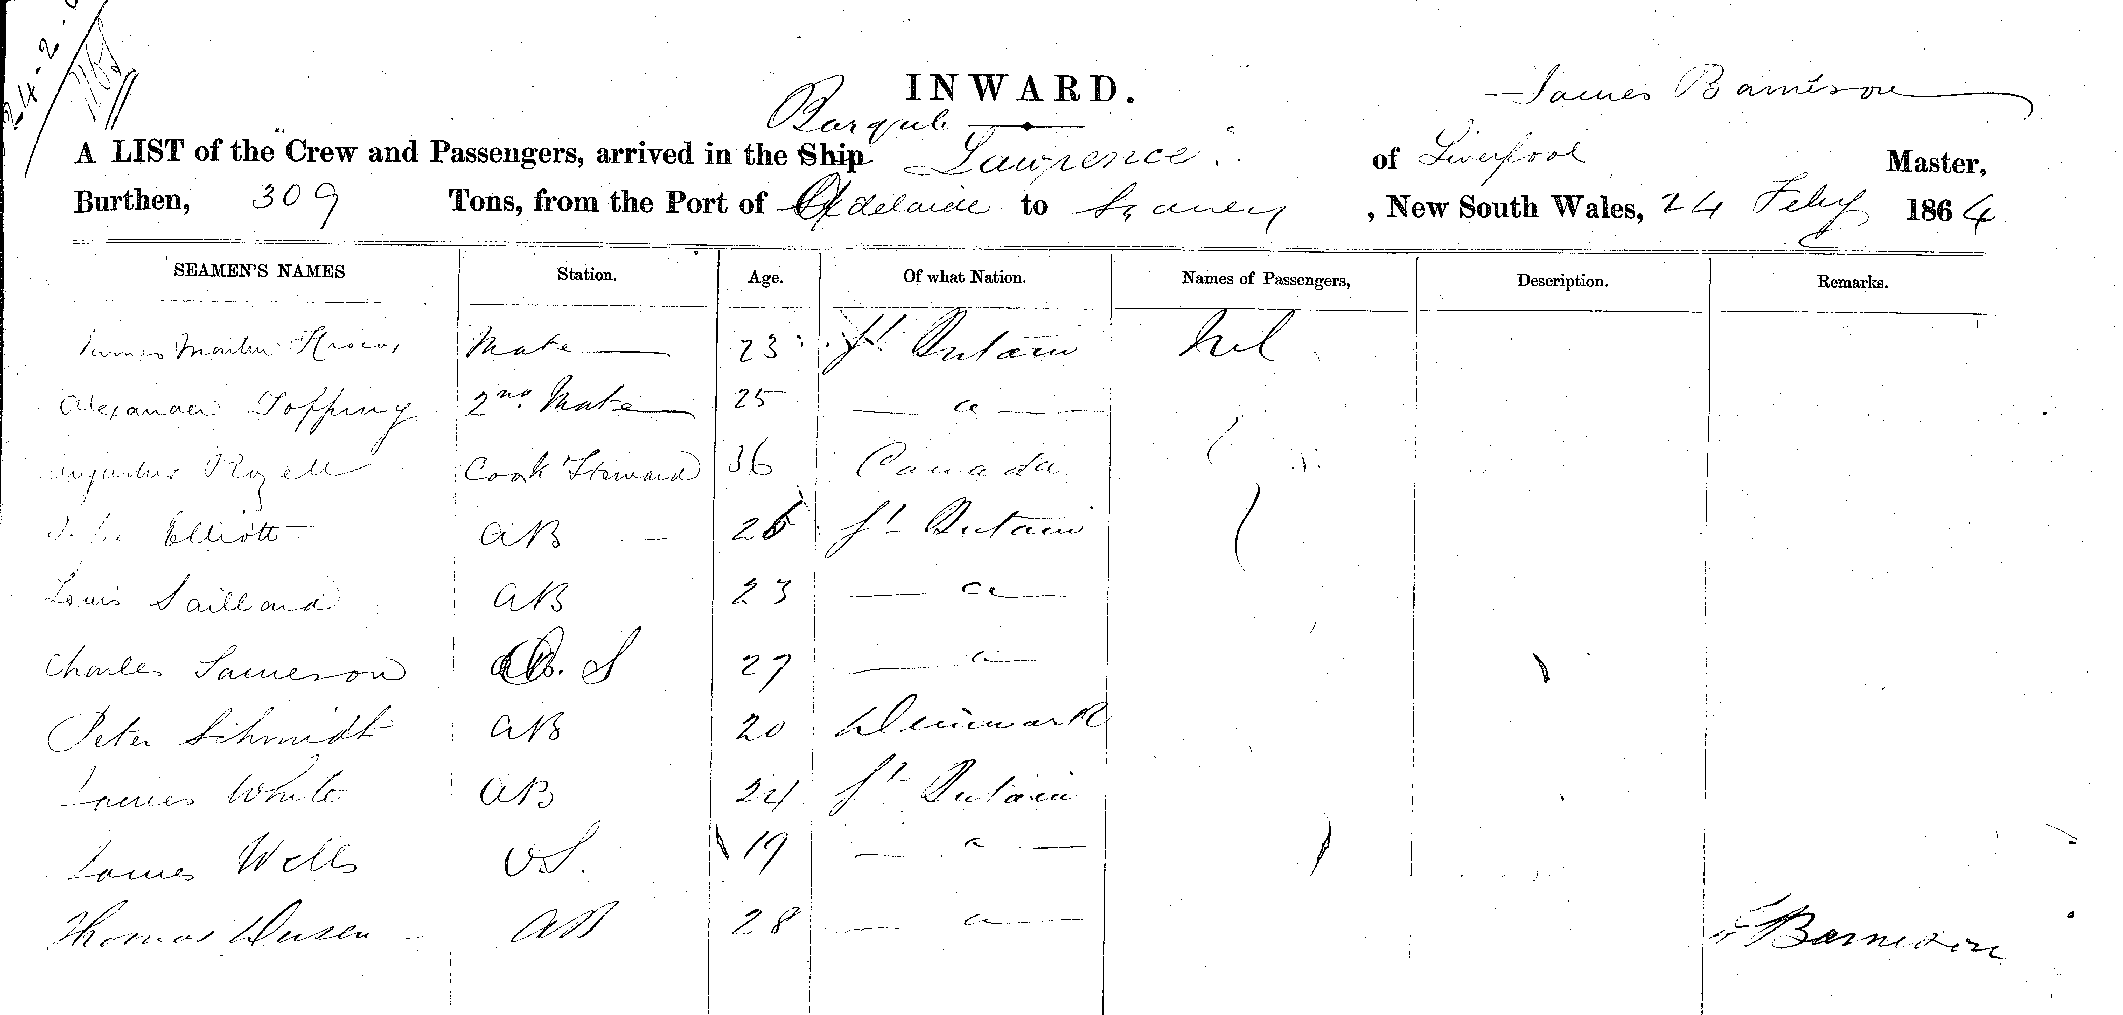 24-2-
INWARD.
James Barneson
Barque
A LIST of the Crew and Passengers, arrived in the Ship Lawrence of Liverpool Master,
Burthen, 309 Tons, from the Port of Adelaide to Sydney, New South Wales, 24 Feby 1864
SEAMEN'S NAMES Station. Age. Of what Nation. Names of Passengers, Description. Remarks.
James Martin Mate 23 Gt Britain Nil
Alexander Topping 2nd Mate 25 — a —
Rozell Cook Steward 36 Canada
Elliott AB 26 Gt Britain
Louis Saillard AB 23 — a —
Charles Jameson O. S 27 — a —
Peter Schmidt AB 20 Denmark
James White AB 24 Gt Britain
James Wells OS. 19 — a —
Thomas AB 28 — a —
Barneson